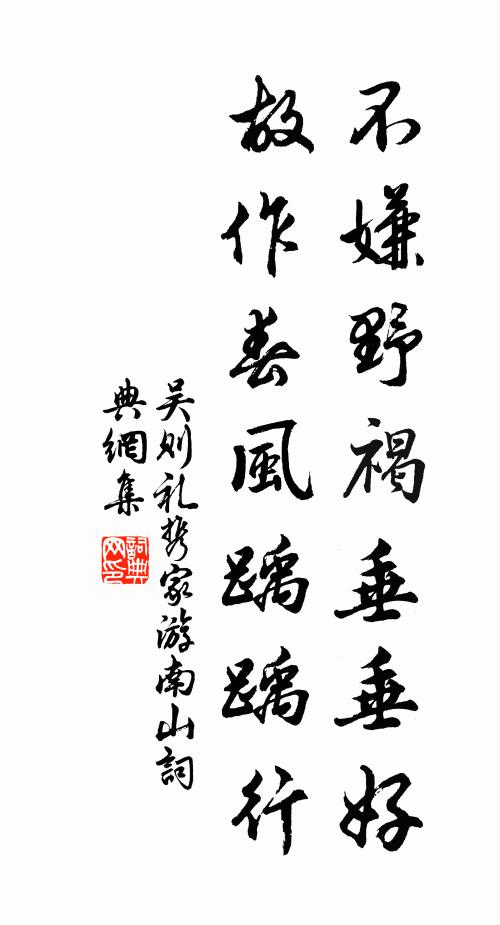 不嫌野褐垂垂好
故作春風踽踽行
吴则礼携家游南山詞
典網集
詞典
网印